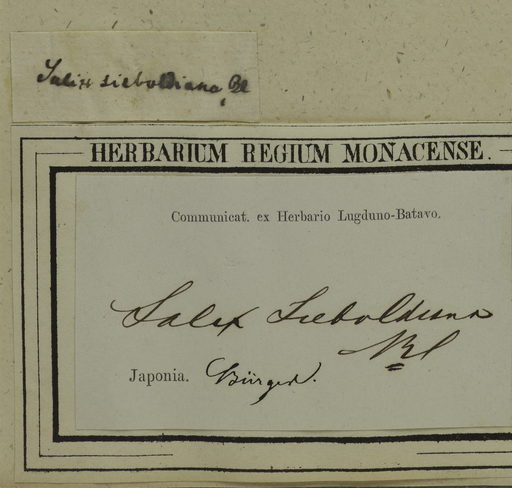 Salix sieboldiana, Bl
HERBARIUM REGIUM MONACENSE.
Communicat. ex Herbario Lugduno-Batavo.
Salix Sieboldiana
Bl
Japonia. Bürger.